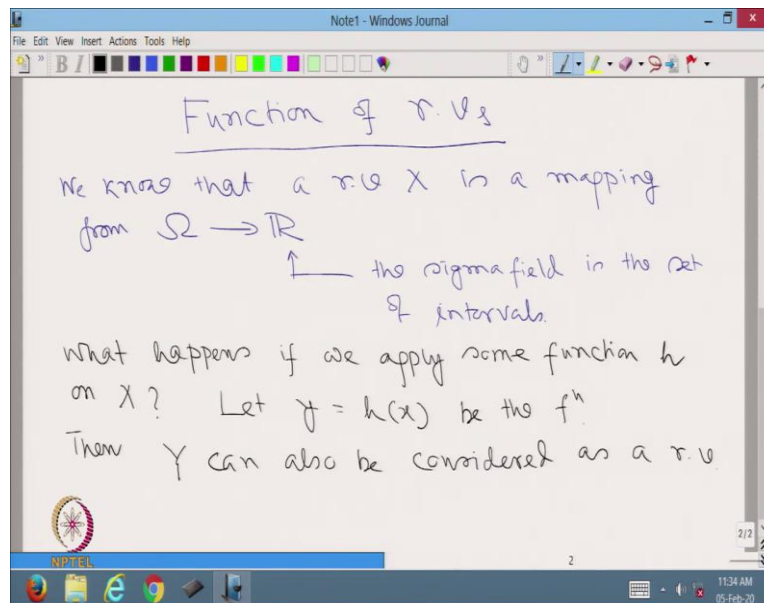 Note1 - Windows Journal
File Edit View Insert Actions Tools Help
B I
Function of r.vs
We know that a r.v X is a mapping
from Ω → ℝ
the sigma field is the set
of intervals.
What happens if we apply some function h
on X? Let y = h(x) be the fⁿ.
Then Y can also be considered as a r.v.
2/2
NPTEL
2
11:34 AM
05-Feb-20